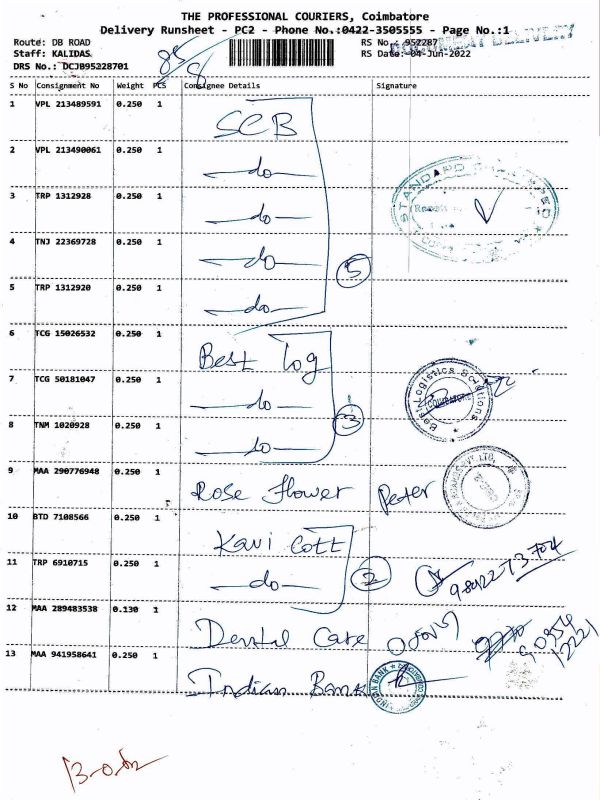 THE PROFESSIONAL COURIERS, Coimbatore
Delivery Runsheet - PC2 - Phone No.:0422-3505555 - Page No.:1
Route: DB ROAD
RS No.: 952287
DELIVERY
Staff: KALIDAS
RS Date: 04-Jun-2022
DRS No.: DCJB95228701
S No Consignment No Weight PCS Consignee Details Signature
1 VPL 213489591 0.250 1 SCB
2 VPL 213490061 0.250 1 do
3 TRP 1312928 0.250 1 do
4 TNJ 22369728 0.250 1 do
5
5 TRP 1312920 0.250 1 do
STANDARD
6 TCG 15026532 0.250 1 Best log
7 TCG 50181047 0.250 1 do
3
8 TNM 1020928 0.250 1 do
Best Logistics Solutions
COIMBATORE
9 MAA 290776948 0.250 1 Rose flower Peter
10 BTD 7108566 0.250 1 Kavi Cott
11 TRP 6910715 0.250 1 do
2
12 MAA 289483538 0.130 1 Dental Care
13 MAA 941958641 0.250 1 Indian Bank
INDIAN BANK